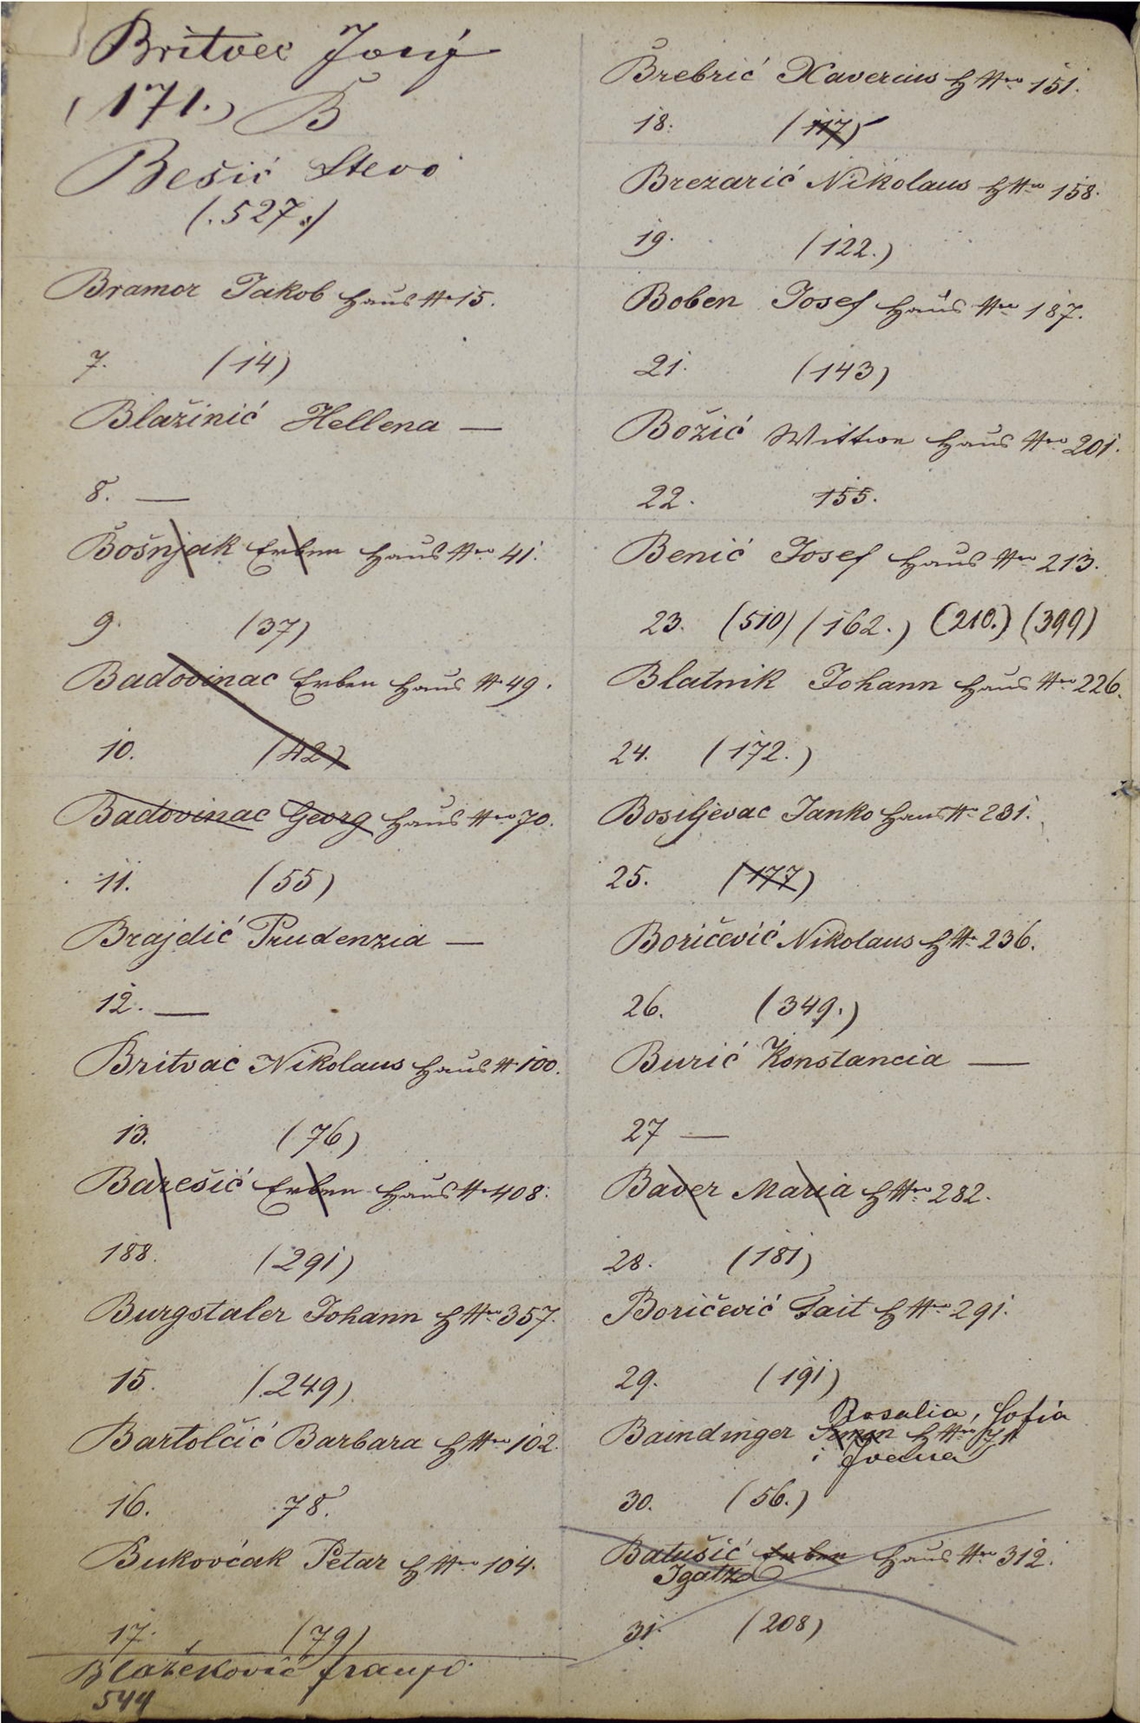 Britvec Josip
(171.) B
Bešić Stevo
(.527.)
Bramor Jakob Haus No 15.
7. (14)
Blažinić Hellena —
8. —
Bošnjak Erben Haus Nro 41.
9. (37)
Badovinac Erben Haus No 49.
10. (42)
Badovinac Georg Haus Nro 70.
11. (55)
Brajdić Prudenzia —
12. —
Britvac Nikolaus Haus No 100.
13. (76)
Barešić Erben Haus No 408.
188. (291)
Burgstaler Johann H Nro 357.
15. (249)
Bartolčić Barbara H Nro 102.
16. 78.
Bukovčak Petar H Nro 104.
17. (79)
Blažeković Franjo
544
Brebrić Xaverius H Nro 151.
18. (117)
Brezarić Nikolaus H Nro 158.
19. (122.)
Boben Josef Haus Nro 187.
21. (143)
Božić Wittwe Haus Nro 201.
22. 155.
Benić Josef Haus Nro 213.
23. (510) (162.) (210.) (399)
Blatnik Johann Haus Nro 226.
24. (172.)
Bosiljevac Janko Haus No 231.
25. (177)
Boričević Nikolaus H No 236.
26. (349.)
Burić Konstancia —
27 —
Baver Maria H Nro 282.
28. (181)
Boričević Tait H Nro 291.
29. (191)
Rosalia, Sofia
Baindinger Simon H Nro
i Ivana
30. (56.)
Batušić Erben Haus Nro 312.
Igatz
31. (208)